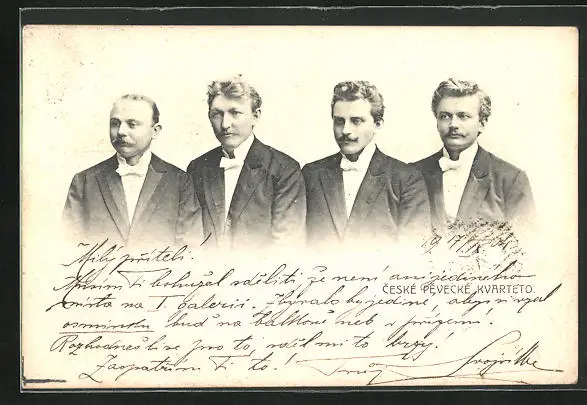 Milý příteli!
19 17/IX 04
Musím Ti bohužel sděliti, že není ani jediného
ČESKÉ PĚVECKÉ KVARTETO.
místa na I galerii. Zbývalo by jedině, abys si vzal
osminku buď na balkoně neb v přízemí.
Rozhodneš-li se pro to, račiž mi to brzy!
Zaopatřím Ti to!